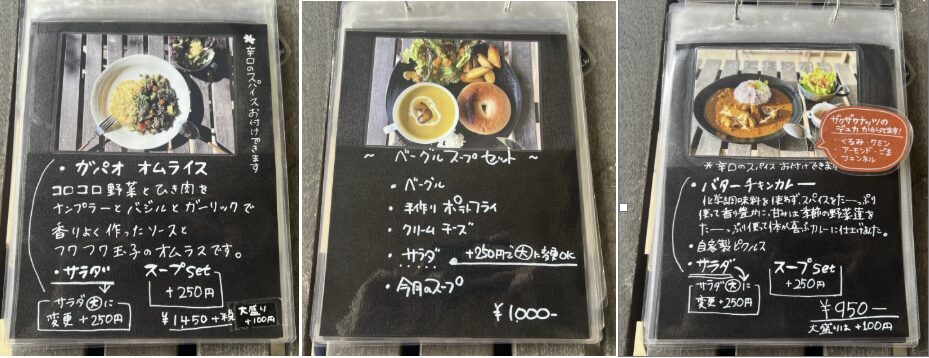 *辛口のスパイスお付けできます
・ガパオ オムライス
コロコロ野菜とひき肉を
ナンプラーとバジルとガーリックで
香りよく作ったソースと
フワフワ玉子のオムラスです。
・サラダ
サラダ大に
変更+250円
スープset
+250円
¥1450+税
大盛り
+100円
~ ベーグルスープセット ~
・ベーグル
・手作りポテトフライ
・クリームチーズ
・サラダ +250円で大に変更OK
・今月のスープ
¥1000-
ザクザクナッツの
デュカがかかってます!
・くるみ・クミン
アーモンド・ごま
フェンネル
*辛口のスパイスお付けできます
・バターチキンカレー
化学調味料を使わずスパイスをたーっぷり
使って香り豊かに、甘みは季節の野菜達を
たーっぷり使って体が喜ぶカレーに仕上げました。
・自家製ピクルス
・サラダ
サラダ大に
変更+250円
スープset
+250円
¥950-
大盛りは+100円